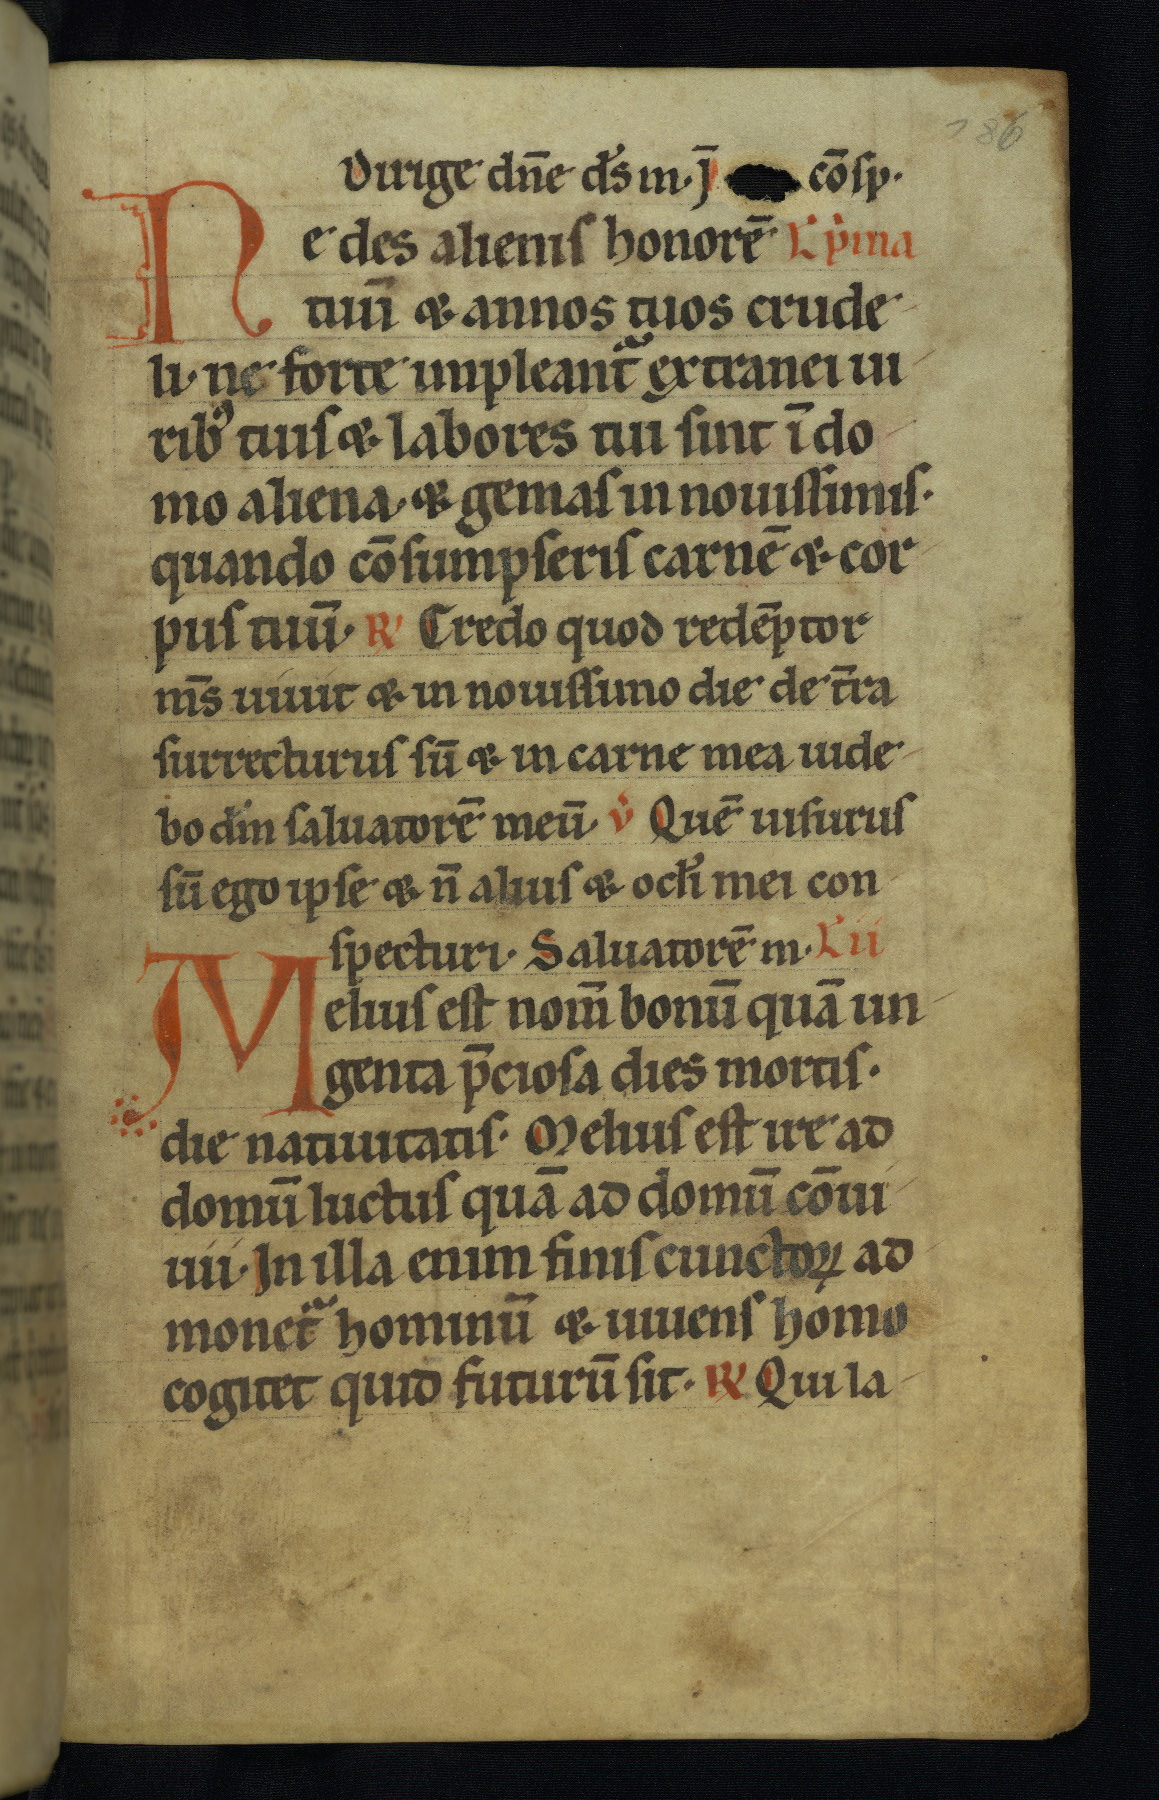 186
Dirige dn̄e d̄s m. J̄ cōsp.
Ne des alienis honorē L p̄ma
tuū & annos tuos crude
li. ne forte impleant᷑ extranei ui
rib⁹ tuis & labores tui sint ī do
mo aliena. & gemas in nouissimis.
quando cōsumpseris carnē & cor
pus tuū. R̸ Credo quod redēptor
m̄s uiuit & in nouissimo die de t̄ra
surrecturus sū & in carne mea uide
bo dm̄ saluatorē meū. v̓ Quē uisurus
sū ego ipse & n̄ alius & oc̄li mei con
specturi. Saluatorē m. L ii
Melius est nom̄ bonū quā un
genta p̄ciosa dies mortis.
die natiuitatis. Melius est ire ad
domū luctus quā ad domū cōui
uii. In illa enim finis cunctoꝝ ad
monet᷑ hominū & uiuens homo
cogitet quid futurū sit. R̸ Qui la